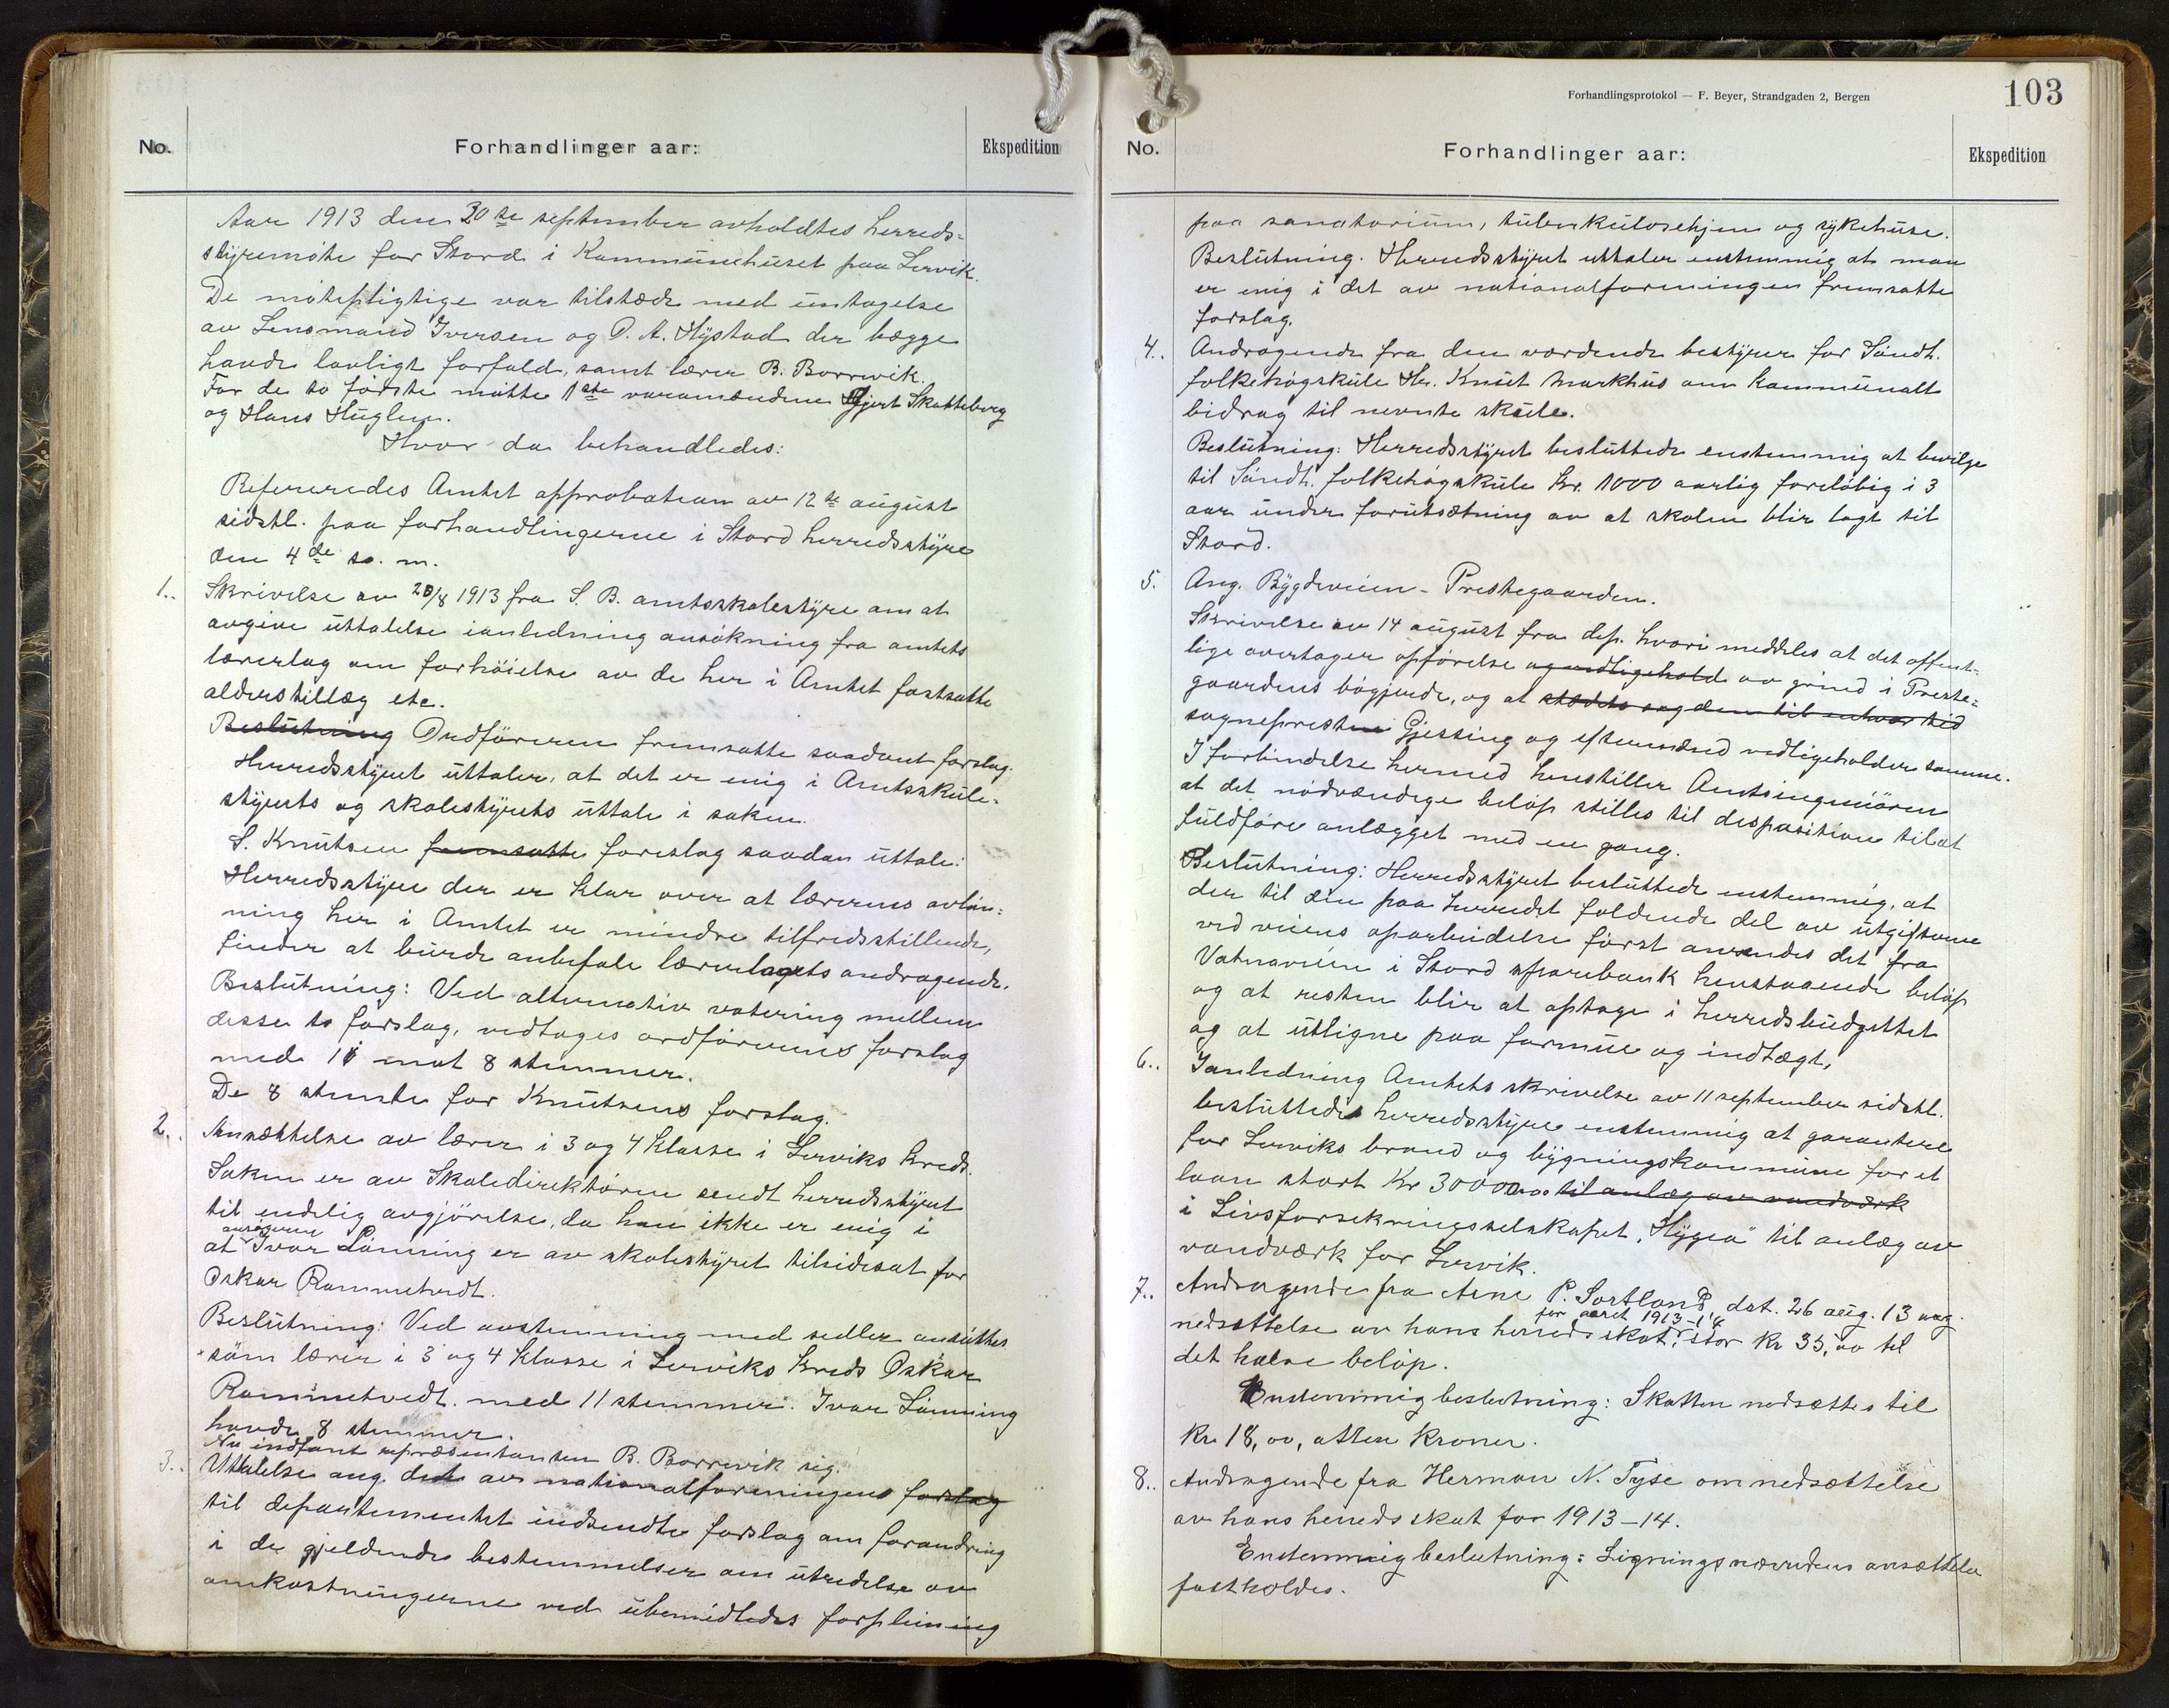 No.
Forhandlinger aar:
Ekspedition
Aar 1913 den 30te september avholdtes herreds-
styremøte for Stord i Kommunehuset paa Lervik.
De møtepligtige var tilstæde med untagelse
av Lensmand Iversen og O. A. Hystad der bægge
havde lovligt forfald, samt lærer B. Borrevik.
For de to første møtte 1ste varamændene Gjert Skatteborg
og Hans Huglen.
Hvor da behandledes:
Refereredes Amtet approbation av 12te august
sidstl. paa forhandlingerne i Stord herredsstyre
den 4de s. m.
1.. Skrivelse av 20/8 1913 fra S. B. amtsskolestyre om at
avgive uttalelse ianledning ansøkning fra amtets
lærerlag om forhöielse av de her i Amtet fastsatte
alderstillæg etc.
Beslutning Ordföreren fremsatte saadant forslag:
Herredsstyret uttaler, at det er enig i Amtsskule-
styrets og skolestyrets uttale i saken.
S. Knutsen fremsatte foreslog saadan uttale:
Herredsstyre der er klar over at lærerens avløn-
ning her i Amtet er mindre tilfredsstillende,
finder at burde anbefale lærerlagets andragende.
Beslutning: Ved alternativ votering mellem
disse to forslag, vedtages ordførerens forslag
med 11 mot 8 stemmer.
De 8 stemte for Knutsens forslag.
2.. Ansættelse av lærer i 3 og 4 klasse i Lerviks kreds.
Saken er av Skoledirektøren sendt herredsstyret
til endelig avgjörelse, da han ikke er enig i
at ansøgeren Ivar Lönning er av skolestyret tilsidesat for
Oskar Rommetvedt.
Beslutning: Ved avstemning med sedler ansattes
som lærer i 3 og 4 klasse i Lerviks kreds Oskar
Rommetvedt med 11 stemmer. Ivar Lönning
havde 8 stemmer.
Nu indfant repræsentanten B. Borrevik sig.
3.. Uttalelse ang. det av nationalforeningens forslag
til departementet indsendte forslag om forandring
i de gjeldende bestemmelser om utredelse av
omkostningerne ved ubemidledes forpleining
Forhandlingsprotokol — F. Beyer, Strandgaden 2, Bergen
103
No.
Forhandlinger aar:
Ekspedition
paa sanatorium, tuberkulosehjem og sykehuse.
Beslutning. Herredsstyret uttaler enstemmig at man
er enig i det av nationalforeningen fremsatte
forslag.
4.. Andragende fra den vordende bestyrer for Söndh.
folkehøgskule Hr. Knut Markhus om kommunalt
bidrag til nevnte skule.
Beslutning: Herredsstyret besluttede enstemmig at bevilge
til Söndh. folkehøgskule Kr. 1000 aarlig foreløbig i 3
aar under forutsætning av at skolen blir lagt til
Stord.
5. Ang. Bygdeveien - Prestegaarden.
Skrivelse av 14 august fra dep. hvori meddeles at det offent-
lige overtager opførelse og vedligehold av grind i Preste-
gaardens bøgjerde, og at stedets sogden til enhver tid
sogneprest Gjessing og eftermænd vedligeholder samme.
I forbindelse hermed henstiller Amtsingeniören
at det nödvendige beløp stilles til desposition til at
fuldføre anlægget med en gang.
Beslutning: Herredsstyret besluttede enstemmig, at
der til den paa herredet faldende del av utgifterne
ved veiens oparbeidelse först anvendes det fra
Vatnaveien i Stord sparebank henstaaende beløp
og at resten blir at optage i herredsbudgettet
og at utligne paa formue og indtægt.
6.. Ianledning Amtets skrivelse av 11 september sidstl.
besluttedes herredsstyre enstemmig at garantere
for Lerviks brand og bygningskommune for et
laan stort Kr 30000,00 til anlæg av vandværk
i Livsforsekringsselskapet "Hygea" til anlæg av
vandværk for Lervik.
7.. Andragende fra Arne P. Sortland, dat. 26 aug. 13 ang.
nedsættelse av hans herredsskat, for aaret 1913-14 stor kr 35,00 til
det halve beløp.
Enstemmig beslutning: Skatten nedsættes til
kr. 18,00, atten kroner.
8.. Andragende fra Herman N. Tyse om nedsættelse
av hans herredsskat for 1913-14.
Enstemmig beslutning: Ligningsnævndens ansættelse
fastholdes.